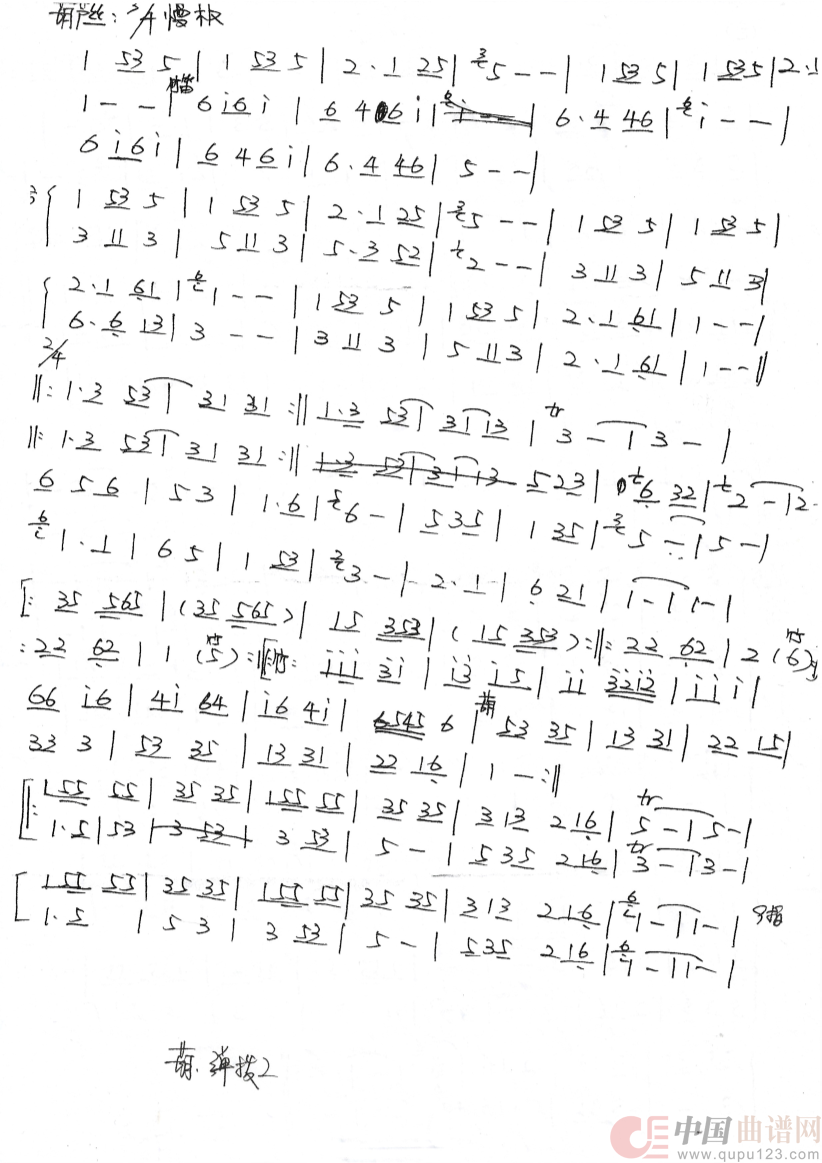 葫芦丝: 3/4 慢板
1 53 5 | 1 53 5 | 2·1 25 | 5 - - | 1 53 5 | 1 53 5 | 2·1
1 - - | 6 i6 i | 6 4 6 i | 6·4 46 | i - - |
6 i6 i | 6 4 6 i | 6·4 46 | 5 - - |
1 53 5 | 1 53 5 | 2·1 25 | 5 - - | 1 53 5 | 1 53 5 |
3 11 3 | 5 11 3 | 5·3 52 | 2 - - | 3 11 3 | 5 11 3 |
2·1 61 | 1 - - | 1 53 5 | 1 53 5 | 2·1 61 | 1 - - |
6·6 13 | 3 - - | 3 11 3 | 5 11 3 | 2·1 61 | 1 - - ||
2/4
||: 1·3 53 | 31 31 :|| 1·3 53 | 31 13 | tr 3 - | 3 - |
||: 1·3 53 | 31 31 :|| 5 23 | 6 32 | 2 - | 2 -
6 56 | 5 3 | 1·6 | 6 - | 535 | 1 35 | 5 - | 5 - |
1·1 | 6 5 | 1 53 | 3 - | 2·1 | 6 21 | 1 - | 1 - |
[: 35 565 | (35 565) | 15 353 | (15 353) :||: 22 62 | 2 (6)
: 22 62 | 1 (5) :|| iii 3i | i3 i5 | ii 3212 | ii i |
66 i6 | 4i 64 | i6 4i | 6545 6 | 葫 53 35 | 13 31 | 22 15 |
33 3 | 53 35 | 13 31 | 22 16 | 1 - :||
[: 155 55 | 35 35 | 155 55 | 35 35 | 313 216 | tr 5 - | 5 - |
1·5 | 53 | 3 53 | 5 - | 535 216 | tr 3 - | 3 - |
[ 155 55 | 35 35 | 155 55 | 35 35 | 313 216 | 1 - | 1 - |
1·5 | 5 3 | 3 53 | 5 - | 535 216 | 1 - | 1 - |
葫、弹拨2
中国曲谱网
www.qupu123.com